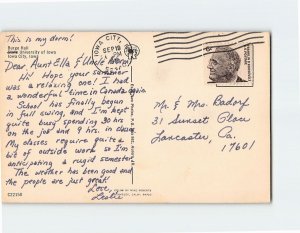 This is my dorm!
Burge Hall
University of Iowa
Iowa City, Iowa
IOWA CITY,
SEP 19
Dear Aunt Ella & Uncle
Hi! Hope your summer
was a relaxing one! I had
a wonderful time in Canada again.
School has finally begun
in full swing, and I'm kept
quite busy spending 30 hrs
on the job and 9 hrs. in class.
My classes require quite a
bit of outside work so I'm
anticipating a rugid semester.
The weather has been good and
the people are just great!
Love,
Leslie
C22158
Mr & Mrs. Badorf
31 Sunset
Lancaster, Pa.
17601
6¢